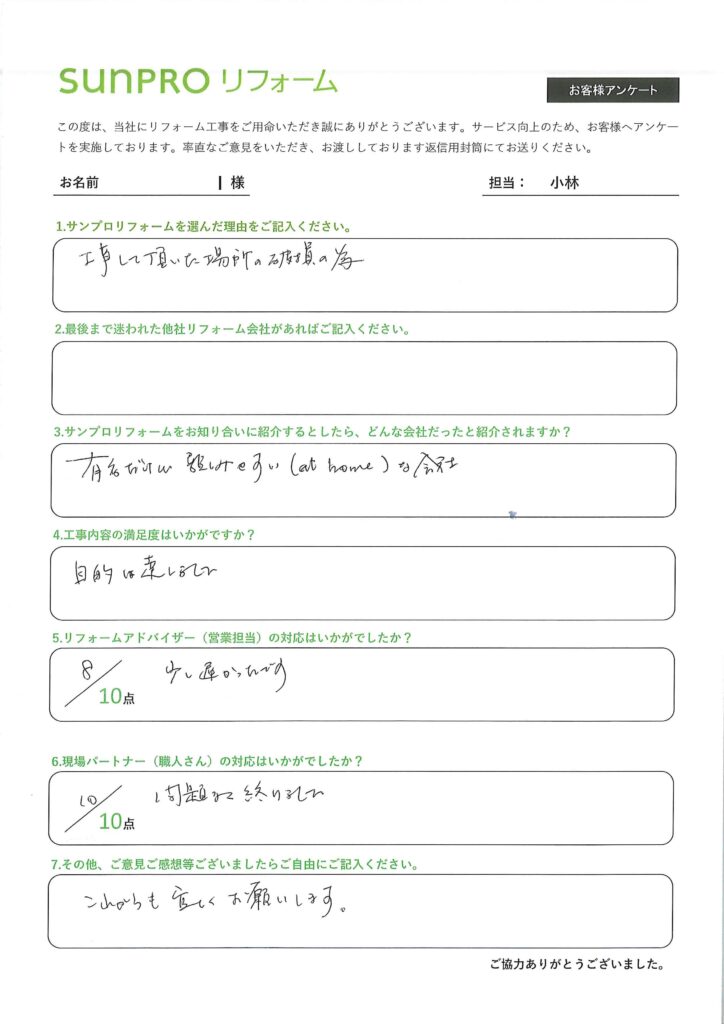 sunPRO リフォーム
お客様アンケート
この度は、当社にリフォーム工事をご用命いただき誠にありがとうございます。サービス向上のため、お客様へアンケー
トを実施しております。率直なご意見をいただき、お渡ししております返信用封筒にてお送りください。
お名前 様 担当： 小林
1.サンプロリフォームを選んだ理由をご記入ください。
工事して頂いた場所の破損の為
2.最後まで迷われた他社リフォーム会社があればご記入ください。
3.サンプロリフォームをお知り合いに紹介するとしたら、どんな会社だったと紹介されますか？
有名だけど親しみやすい(at home)な会社
4.工事内容の満足度はいかがですか？
目的は達しました
5.リフォームアドバイザー（営業担当）の対応はいかがでしたか？
8/10点 少し遅かったです
6.現場パートナー（職人さん）の対応はいかがでしたか？
10/10点 問題なく終りました
7.その他、ご意見ご感想等ございましたらご自由にご記入ください。
これからも宜しくお願いします。
ご協力ありがとうございました。